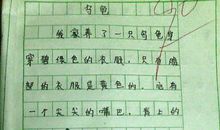 鸟
我家养了一只鸟它身
穿着绿色的衣服，只有
的衣服是黄色的。有
一个尖尖的嘴巴，身上的